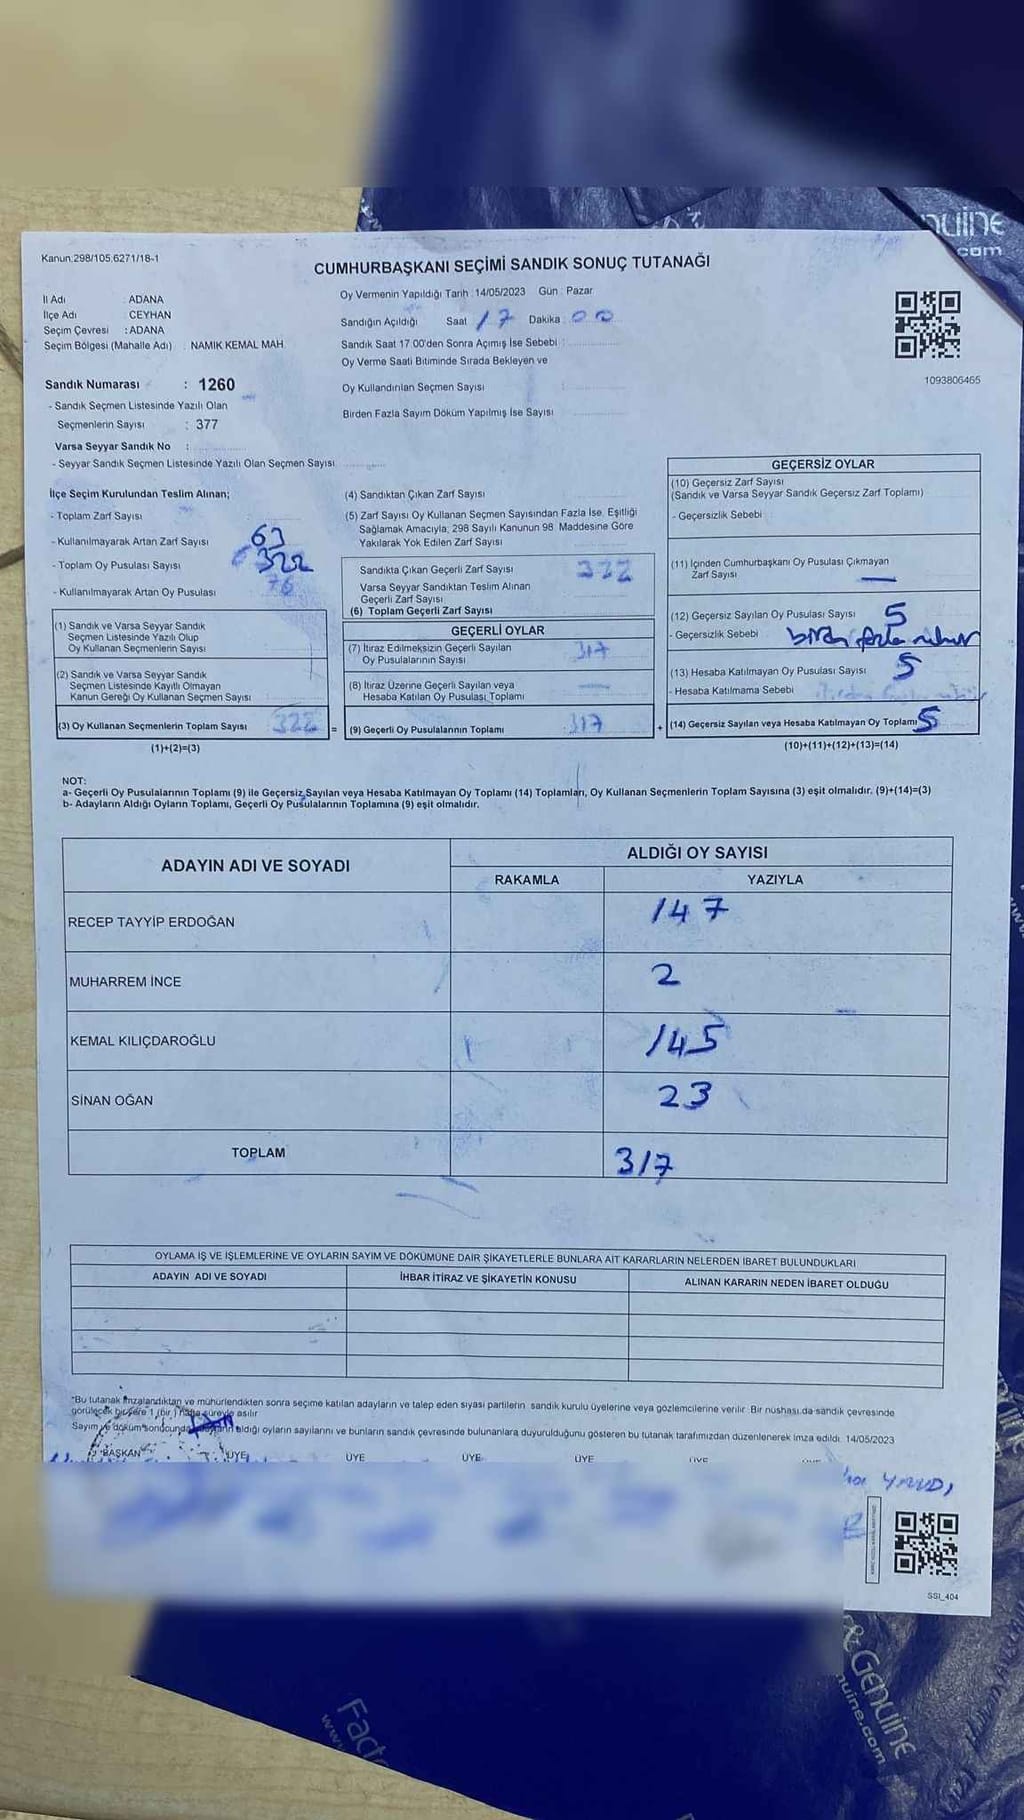 nuine
.com
Kanun.298/105,6271/18-1
CUMHURBAŞKANI SEÇİMİ SANDIK SONUÇ TUTANAĞI
İl Adı : ADANA
İlçe Adı : CEYHAN
Seçim Çevresi : ADANA
Seçim Bölgesi (Mahalle Adı) : NAMIK KEMAL MAH.
Oy Vermenin Yapıldığı Tarih : 14/05/2023 Gün : Pazar
Sandığın Açıldığı Saat 17 Dakika : 00
Sandık Saat 17.00'den Sonra Açımış İse Sebebi :
Oy Verme Saati Bitiminde Sırada Bekleyen ve
Oy Kullandırılan Seçmen Sayısı
Birden Fazla Sayım Döküm Yapılmış İse Sayısı
1093806465
Sandık Numarası : 1260
- Sandık Seçmen Listesinde Yazılı Olan
Seçmenlerin Sayısı : 377
Varsa Seyyar Sandık No :
- Seyyar Sandık Seçmen Listesinde Yazılı Olan Seçmen Sayısı
İlçe Seçim Kurulundan Teslim Alınan;
- Toplam Zarf Sayısı
- Kullanılmayarak Artan Zarf Sayısı 63
- Toplam Oy Pusulası Sayısı 322
- Kullanılmayarak Artan Oy Pusulası 76
(1) Sandık ve Varsa Seyyar Sandık
Seçmen Listesinde Yazılı Olup
Oy Kullanan Seçmenlerin Sayısı
(2) Sandık ve Varsa Seyyar Sandık
Seçmen Listesinde Kayıtlı Olmayan
Kanun Gereği Oy Kullanan Seçmen Sayısı
(3) Oy Kullanan Seçmenlerin Toplam Sayısı 322 =
(1)+(2)=(3)
(4) Sandıktan Çıkan Zarf Sayısı
(5) Zarf Sayısı Oy Kullanan Seçmen Sayısından Fazla İse, Eşitliği
Sağlamak Amacıyla, 298 Sayılı Kanunun 98. Maddesine Göre
Yakılarak Yok Edilen Zarf Sayısı
Sandıkta Çıkan Geçerli Zarf Sayısı 322
Varsa Seyyar Sandıktan Teslim Alınan
Geçerli Zarf Sayısı
(6) Toplam Geçerli Zarf Sayısı
GEÇERLİ OYLAR
(7) İtiraz Edilmeksizin Geçerli Sayılan 317
Oy Pusulalarının Sayısı
(8) İtiraz Üzerine Geçerli Sayılan veya —
Hesaba Katılan Oy Pusulası Toplamı
(9) Geçerli Oy Pusulalarının Toplamı 317 +
GEÇERSİZ OYLAR
(10) Geçersiz Zarf Sayısı
(Sandık ve Varsa Seyyar Sandık Geçersiz Zarf Toplamı)
- Geçersizlik Sebebi
(11) İçinden Cumhurbaşkanı Oy Pusulası Çıkmayan
Zarf Sayısı —
(12) Geçersiz Sayılan Oy Pusulası Sayısı 5
- Geçersizlik Sebebi birden fazla mühür
(13) Hesaba Katılmayan Oy Pusulası Sayısı 5
- Hesaba Katılmama Sebebi
(14) Geçersiz Sayılan veya Hesaba Katılmayan Oy Toplamı 5
(10)+(11)+(12)+(13)=(14)
NOT:
a- Geçerli Oy Pusulalarının Toplamı (9) ile Geçersiz Sayılan veya Hesaba Katılmayan Oy Toplamı (14) Toplamları, Oy Kullanan Seçmenlerin Toplam Sayısına (3) eşit olmalıdır. (9)+(14)=(3)
b- Adayların Aldığı Oyların Toplamı, Geçerli Oy Pusulalarının Toplamına (9) eşit olmalıdır.
ADAYIN ADI VE SOYADI
ALDIĞI OY SAYISI
RAKAMLA YAZIYLA
RECEP TAYYİP ERDOĞAN 147
MUHARREM İNCE 2
KEMAL KILIÇDAROĞLU 145
SİNAN OĞAN 23
TOPLAM 317
OYLAMA İŞ VE İŞLEMLERİNE VE OYLARIN SAYIM VE DÖKÜMÜNE DAİR ŞİKAYETLERLE BUNLARA AİT KARARLARIN NELERDEN İBARET BULUNDUKLARI
ADAYIN ADI VE SOYADI İHBAR İTİRAZ VE ŞİKAYETİN KONUSU ALINAN KARARIN NEDEN İBARET OLDUĞU
*Bu tutanak imzalandıktan ve mühürlendikten sonra seçime katılan adayların ve talep eden siyasi partilerin sandık kurulu üyelerine veya gözlemcilerine verilir. Bir nüshası da sandık çevresinde
görülecek bir yere 1 (bir) hafta süreyle asılır.
Sayım ve döküm sonucunda adayların aldığı oyların sayılarını ve bunların sandık çevresinde bulunanlara duyurulduğunu gösteren bu tutanak tarafımızdan düzenlenerek imza edildi. 14/05/2023
BAŞKAN ÜYE ÜYE ÜYE ÜYE ÜYE
SSI_404
& GENUINE
nuine.com
Facto
www.